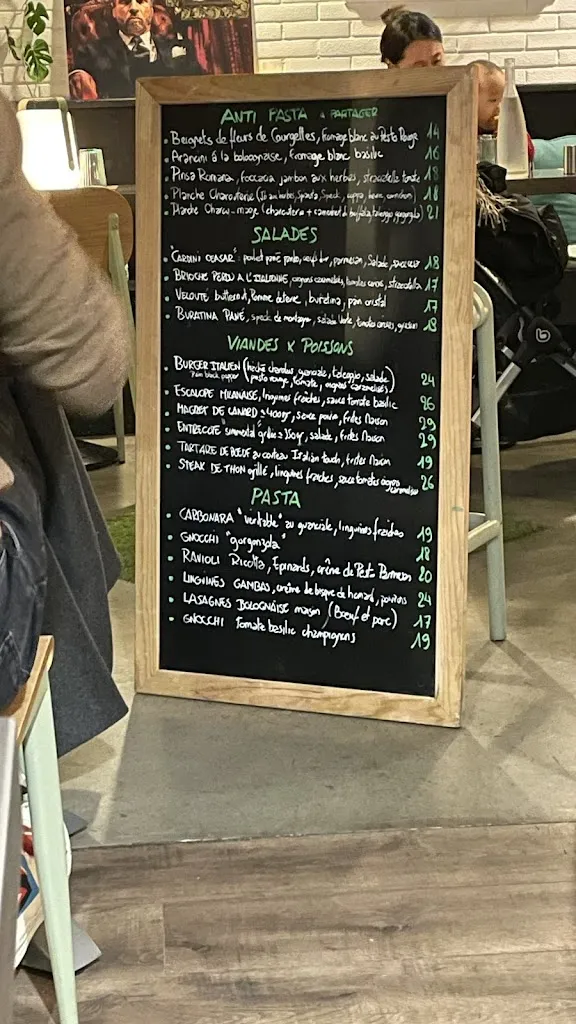 ANTI PASTA à PARTAGER
• Beignets de fleurs de Courgettes, fromage blanc au Pesto Rouge 14
• Arancini à la bolognaise, fromage blanc basilic 16
• Pinsa Romana, foccacia, jambon aux herbes, stracciatella tomate 18
• Planche Charcuterie (Jambon herbes, Spianata, Speck, coppa, cornichon) 18
• Planche Charcu-mage (charcuterie + camembert di buffala, taleggio, gorgonzola) 21
SALADES
• "CARDINI CEASAR": poulet pané panko, oeuf dur, parmesan, Salade, sauce 18
• BRIOCHE PERDU A L'ITALIENNE, oignons caramélisés, tomates cerises, stracciatella 17
• VELOUTÉ butternut, Pomme de terre, buratina, pain cristal 17
• BURATINA PANÉ, speck de montagne, salade Verte, tomates cerises, 18
VIANDES x POISSONS
• BURGER ITALIEN (haché charolais, guanciale, taleggio, salade) 24
Pain black pepper pesto rouge, tomate, oignons caramélisés)
• ESCALOPE MILANAISE, linguines fraîches, sauce tomate basilic 26
• MAGRET DE CANARD ±400gr, sauce, frites Maison 29
• ENTRECOTE "simmental" grillée ± 350gr, salade, frites Maison 29
• TARTARE DE BŒUF au couteau Italian touch, frites Maison 19
• STEAK DE THON grillé, linguines fraîches, sauce tomates oignons caramélisés 26
PASTA
• CARBONARA "véritable" au guanciale, linguines fraîches 19
• GNOCCHI "gorgonzola" 18
• RAVIOLI Ricotta, Epinards, crème de Pesto Parmesan 20
• LINGUINES GAMBAS, crème de bisque de homard, poivrons 24
• LASAGNES BOLOGNAISE maison (Bœuf et porc) 17
• GNOCCHI tomate basilic champignons 19